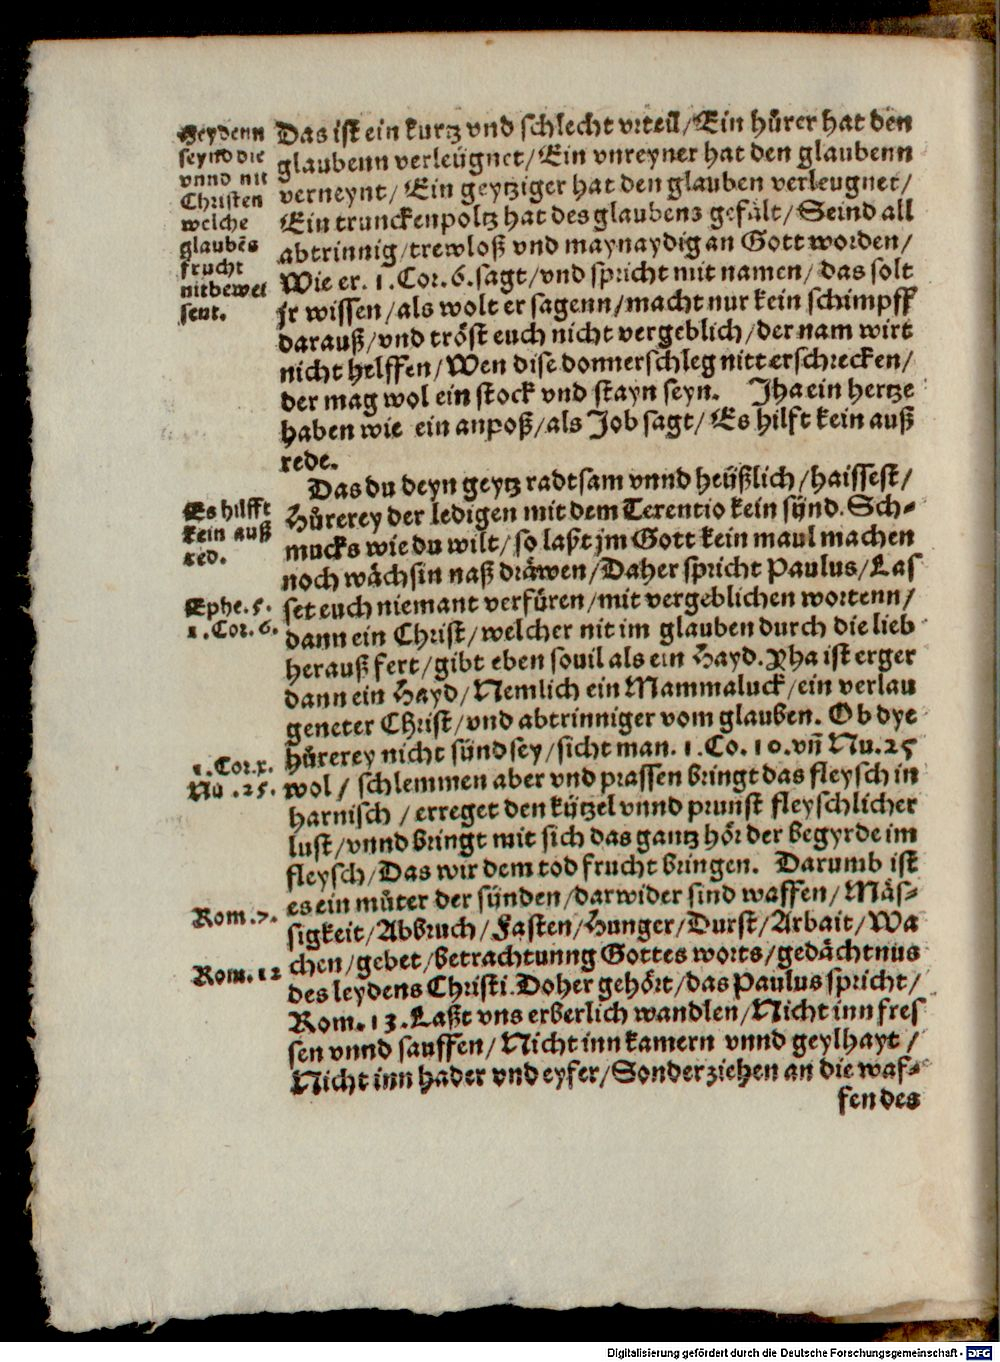 Heydenn
seynd die
vnnd nit
Christen
welche
glaubēs
frucht
nitbewei
sent.
Das ist ein kurtz vnd schlecht vrteil/Ein hůrer hat den
glaubenn verleügnet/Ein vnreyner hat den glaubenn
verneynt/Ein geytziger hat den glauben verleugnet/
Ein trunckenpoltz hat des glaubens gefält/Seind all
abtrinnig/trewloß vnd maynaydig an Gott worden/
Wie er. 1. Cor. 6. sagt/vnd spricht mit namen/das solt
jr wissen/als wolt er sagenn/macht nur kein schimpff
darauß/vnd tröst euch nicht vergeblich/der nam wirt
nicht helffen/Wen dise donnerschleg nitt erschrecken/
der mag wol ein stock vnd stayn seyn. Jha ein hertze
haben wie ein anpoß/als Job sagt/Es hilft kein auß
rede.
Es hilfft
kein auß
red.
Ephe. 5.
1. Cor. 6.
Das du deyn geytz radtsam vnnd heüßlich/haissest/
Hůrerey der ledigen mit dem Terentio kein sünd. Sch-
mucks wie du wilt/so laßt jm Gott kein maul machen
noch wächsin naß dräwen/Daher spricht Paulus/Las
set euch niemant verfüren/mit vergeblichen wortenn/
dann ein Christ/welcher nit im glauben durch die lieb
herauß fert/gibt eben souil als ein Hayd. Yha ist erger
dann ein Hayd/Nemlich ein Mammaluck/ein verlau
geneter Christ/vnd abtrinniger vom glauben. Ob dye
hůrerey nicht sünd sey/sicht man. 1. Co. 10. vñ Nu. 25
1. Cor. x.
Nu .25.
wol/schlemmen aber vnd prassen bringt das fleysch in
harnisch/erreget den kützel vnnd prunst fleyschlicher
lust/vnnd bringt mit sich das gantz hör der begyrde im
fleysch/Das wir dem tod frucht bringen. Darumb ist
es ein můter der sünden/darwider sind waffen/Mäs-
Rom. 7.
sigkeit/Abbruch/Fasten/Hunger/Durst/Arbait/Wa
chen/gebet/betrachtunng Gottes worts/gedächtnus
Rom. 12
des leydens Christi. Doher gehört/das Paulus spricht/
Rom. 13. Laßt vns erberlich wandlen/Nicht inn fres
sen vnnd sauffen/Nicht inn kamern vnnd geylhayt/
Nicht inn hader vnd eyfer/Sonder ziehen an die waf-
fen des
Digitalisierung gefördert durch die Deutsche Forschungsgemeinschaft - DFG